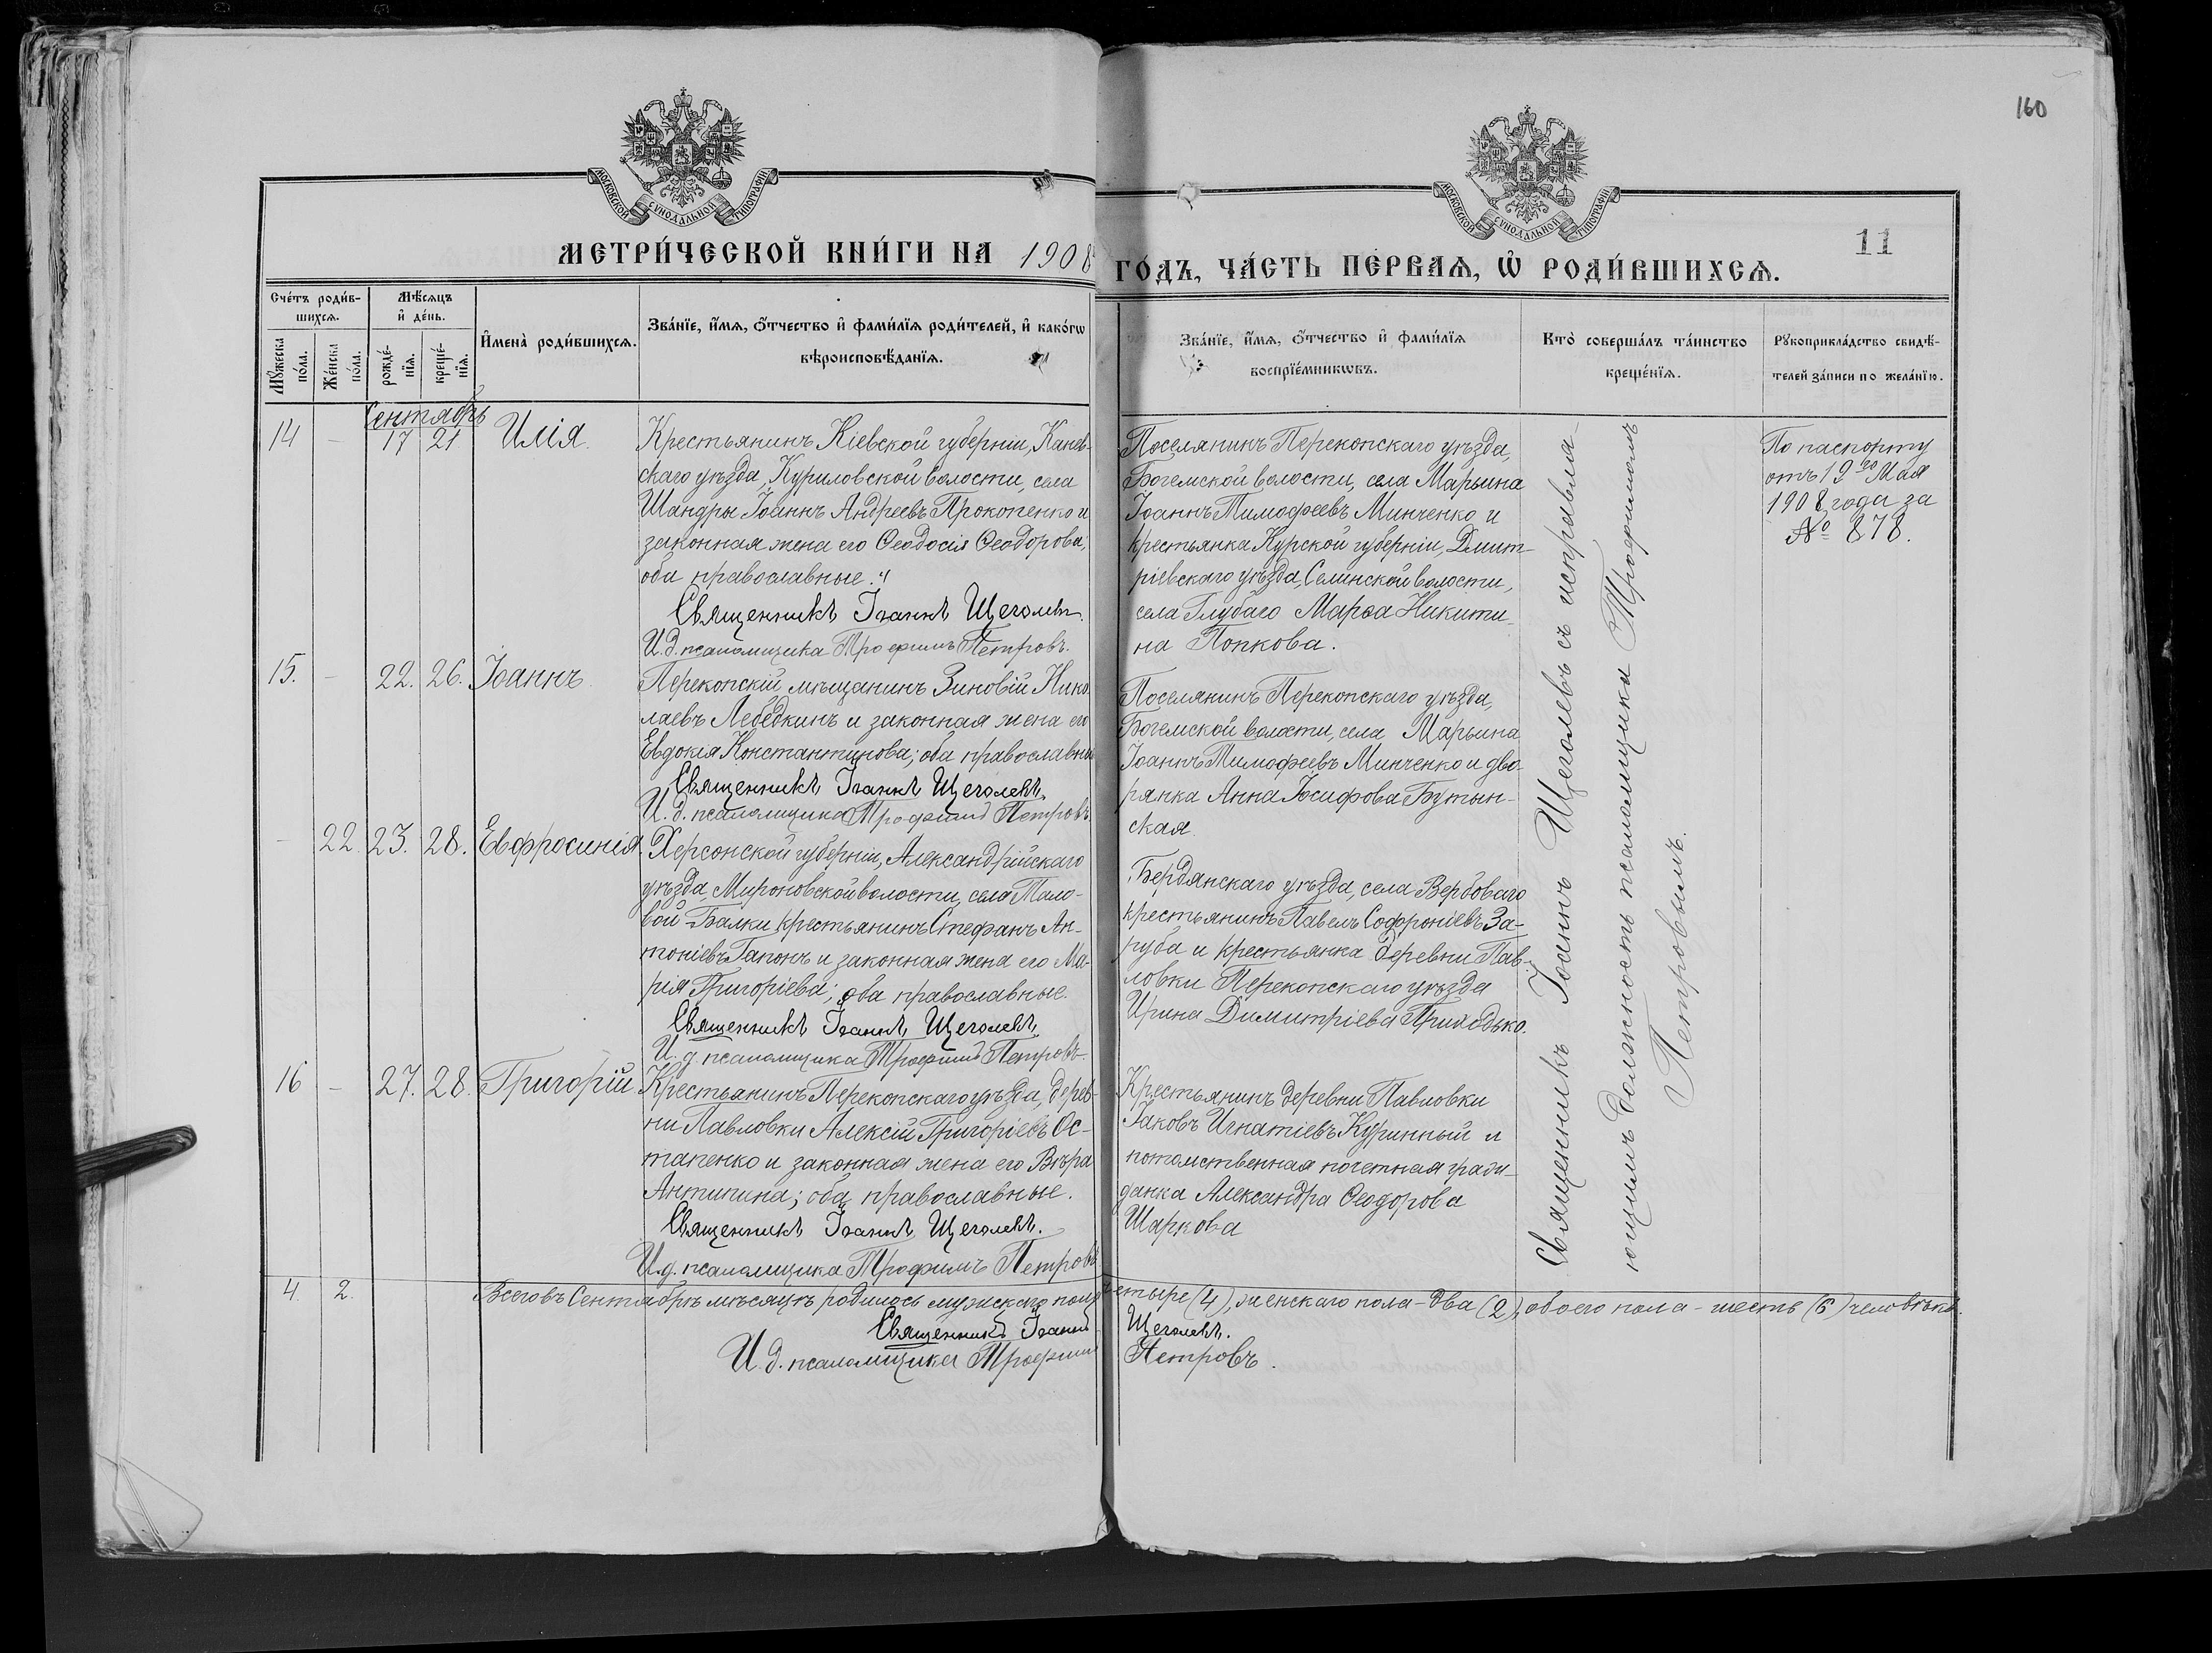 160
МОСКОВСКОЙ СѴНОДАЛЬНОЙ ТИПОГРАФІИ
МОСКОВСКОЙ СѴНОДАЛЬНОЙ ТИПОГРАФІИ
11
МЕТРИ́ЧЕСКОЙ КНИ́ГИ НА 1908
ГО́ДЪ, ЧА́СТЬ ПЕ́РВАѦ, Ѽ РОДИ́ВШИХСѦ.
Сче́тъ роди́в-
шихсѧ.
Мꙋ́жеска по́ла.
Же́нска по́ла.
Мѣ́сѧцъ
и҆ де́нь.
рожде́-
нїѧ.
креще́-
нїѧ.
И҆мена̀ роди́вшихсѧ.
Зва́нїе, и҆́мѧ, ѻ҆́тчество и҆ фами́лїѧ роди́телей, и҆ како́гѡ
вѣроисповѣ́данїѧ.
Зва́нїе, и҆́мѧ, ѻ҆́тчество и҆ фами́лїѧ
воспрїе́мникѡвъ.
Кто̀ соверша́лъ та́инство
креще́нїѧ.
Рꙋкоприкла́дство свидѣ́-
телей за́писи по жела́нїю.
Сентябрь
14 - 17 21 Илія.
Крестьянинъ Кіевской губерніи, Канев-
скаго уѣзда, Куриловской волости, села
Шандры Іоаннъ Андреевъ Прокопенко и
законная жена его Ѳеодосія Ѳеодорова;
оба православные.
Священникъ Іоаннъ Щеголевъ.
И.д. псаломщика Трофимъ Петровъ.
Поселянинъ Перекопскаго уѣзда,
Богемской волости, села Марьина
Іоаннъ Тимофеевъ Минченко и
крестьянка Курской губерніи, Дмит-
ріевскаго уѣзда, Селинской волости,
села Глубаго Марѳа Никити-
на Попкова.
По паспорту
отъ 19го Мая
1908 года за
№ 878.
15. - 22. 26. Іоаннъ
Перекопскій мѣщанинъ Зиновій Нико-
лаевъ Лебедкинъ и законная жена его
Евдокія Константинова; оба православные
Священникъ Іоаннъ Щеголевъ.
И.д. псаломщика Трофимъ Петровъ
Поселянинъ Перекопскаго уѣзда,
Богемской волости, села Марьина
Іоаннъ Тимофеевъ Минченко и дво-
рянка Анна Іосифова Бутын-
ская.
- 22. 23. 28. Евфросинія.
Херсонской губерніи, Александрійскаго
уѣзда, Мироновской волости, села Тало-
вой Балки крестьянинъ Стефанъ Ан-
тоніевъ Гапонъ и законная жена его Ма-
рія Григоріева; оба православные.
Священникъ Іоаннъ Щеголевъ.
И.д. псаломщика Трофимъ Петровъ.
Бердянскаго уѣзда, села Вербоваго
крестьянинъ Павелъ Софроніевъ За-
руба и крестьянка деревни Пав-
ловки Перекопскаго уѣзда
Ирина Димитріева Приходько.
16 - 27. 28. Григорій
Крестьянинъ Перекопскаго уѣзда, дерев-
ни Павловки Алексій Григоріевъ Ос-
тапенко и законная жена его Вѣра
Антипина; оба православные.
Священникъ Іоаннъ Щеголевъ.
И.д. псаломщика Трофимъ Петровъ
Крестьянинъ деревни Павловки
Іаковъ Игнатіевъ Куринный и
потомственная почетная граж-
данка Александра Ѳеодорова
Шаркова
Священникъ Іоаннъ Щеголевъ съ исправля-
ющимъ должность псаломщика Трофимомъ
Петровымъ.
4. 2. Всего въ Сентябрѣ мѣсяцѣ родилось мужскаго пола четыре (4), женскаго пола - два (2), обоего пола - шесть (6) человѣкъ.
Священникъ Іоаннъ Щеголевъ.
И.д. псаломщика Трофимъ Петровъ.